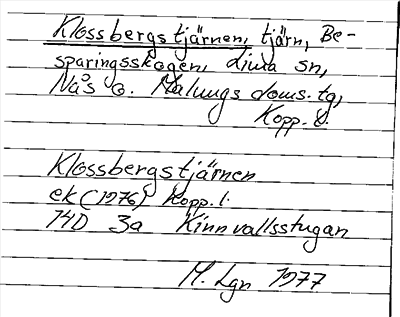 Klossbergstjärnen, tjärn, Be-
sparingsskogen, Lima sn,
Nås o. Malungs doms. tg,
Kopp. l.
Klossbergstjärnen
ek (1976) Kopp. l.
14D 3a Kinnvallsstugan
M. Lgn 1977